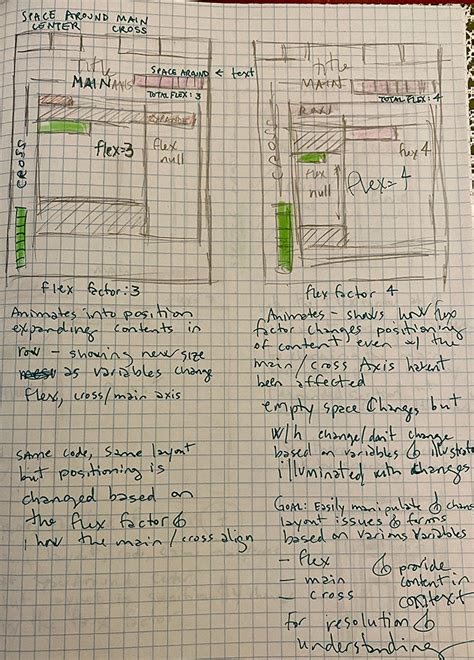 SPACE AROUND MAIN
CENTER CROSS
Title
MAIN AXIS
SPACE AROUND ← text
TOTAL FLEX: 3
EXPANDED
flex=3
flex
null
CROSS
flex factor: 3
Animates into position
expanding contents in
row - showing new size
as variables change
flex, cross/main axis
same code, same layout
but positioning is
changed based on
the flex factor &
how the main/cross align
Title
MAIN
TOTAL FLEX: 4
ROW
flex 4
flex
null
flex=4
CROSS
flex factor 4
Animates - shows how flex
factor changes positioning
of content even w/ the
main/cross Axis havent
been affected
empty space Changes but
w/h change/don't change
based on variables & illustrate
illuminated with changes
GOAL: Easily manipulate & change
layout issues & forms
based on various variables
- flex
- main
- cross
& provide
content in
context
for resolution &
understanding